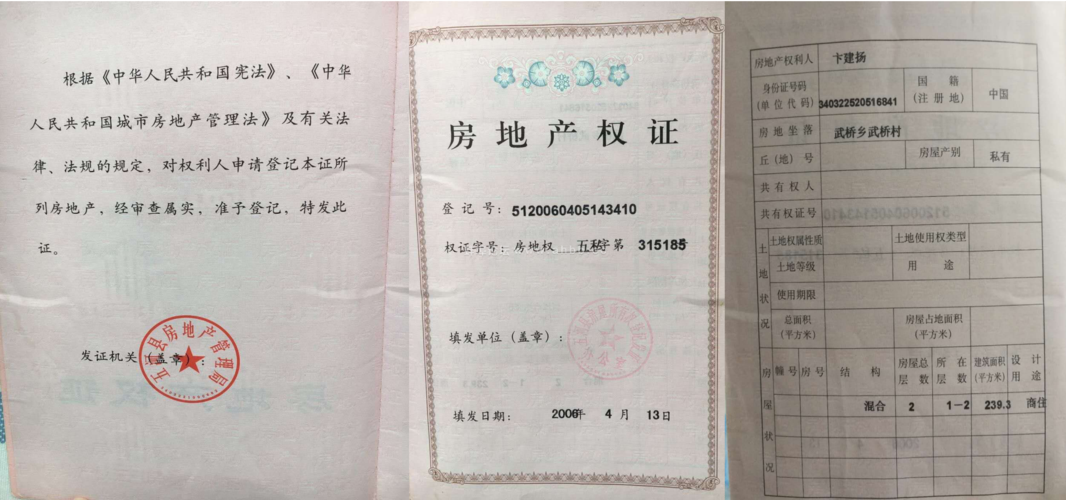 根据《中华人民共和国宪法》、《中华
人民共和国城市房地产管理法》及有关法
律、法规的规定，对权利人申请登记本证所
列房地产，经审查属实，准予登记，特发此
证。
发证机关（盖章）：
县房地产管理局
房地产权证
登记号：5120060405143410
权证字号：房地权 五私字第 315185号
填发单位（盖章）：
填发日期： 2006年 4 月 13日
房地产权利人 卞建扬
身份证号码
(单位代码) 340322520516841 国籍
(注册地) 中国
房地坐落 武桥乡武桥村
丘(地)号 房屋产别 私有
共有权人
共有权证号
土地状况 土地权属性质 土地使用权类型
土地等级 用途
使用期限
总面积
(平方米) 房屋占地面积
(平方米)
房屋状况 幢号 房号 结构 房屋总
层数 所在
层数 建筑面积
(平方米) 设计
用途
混合 2 1－2 239.3 商住